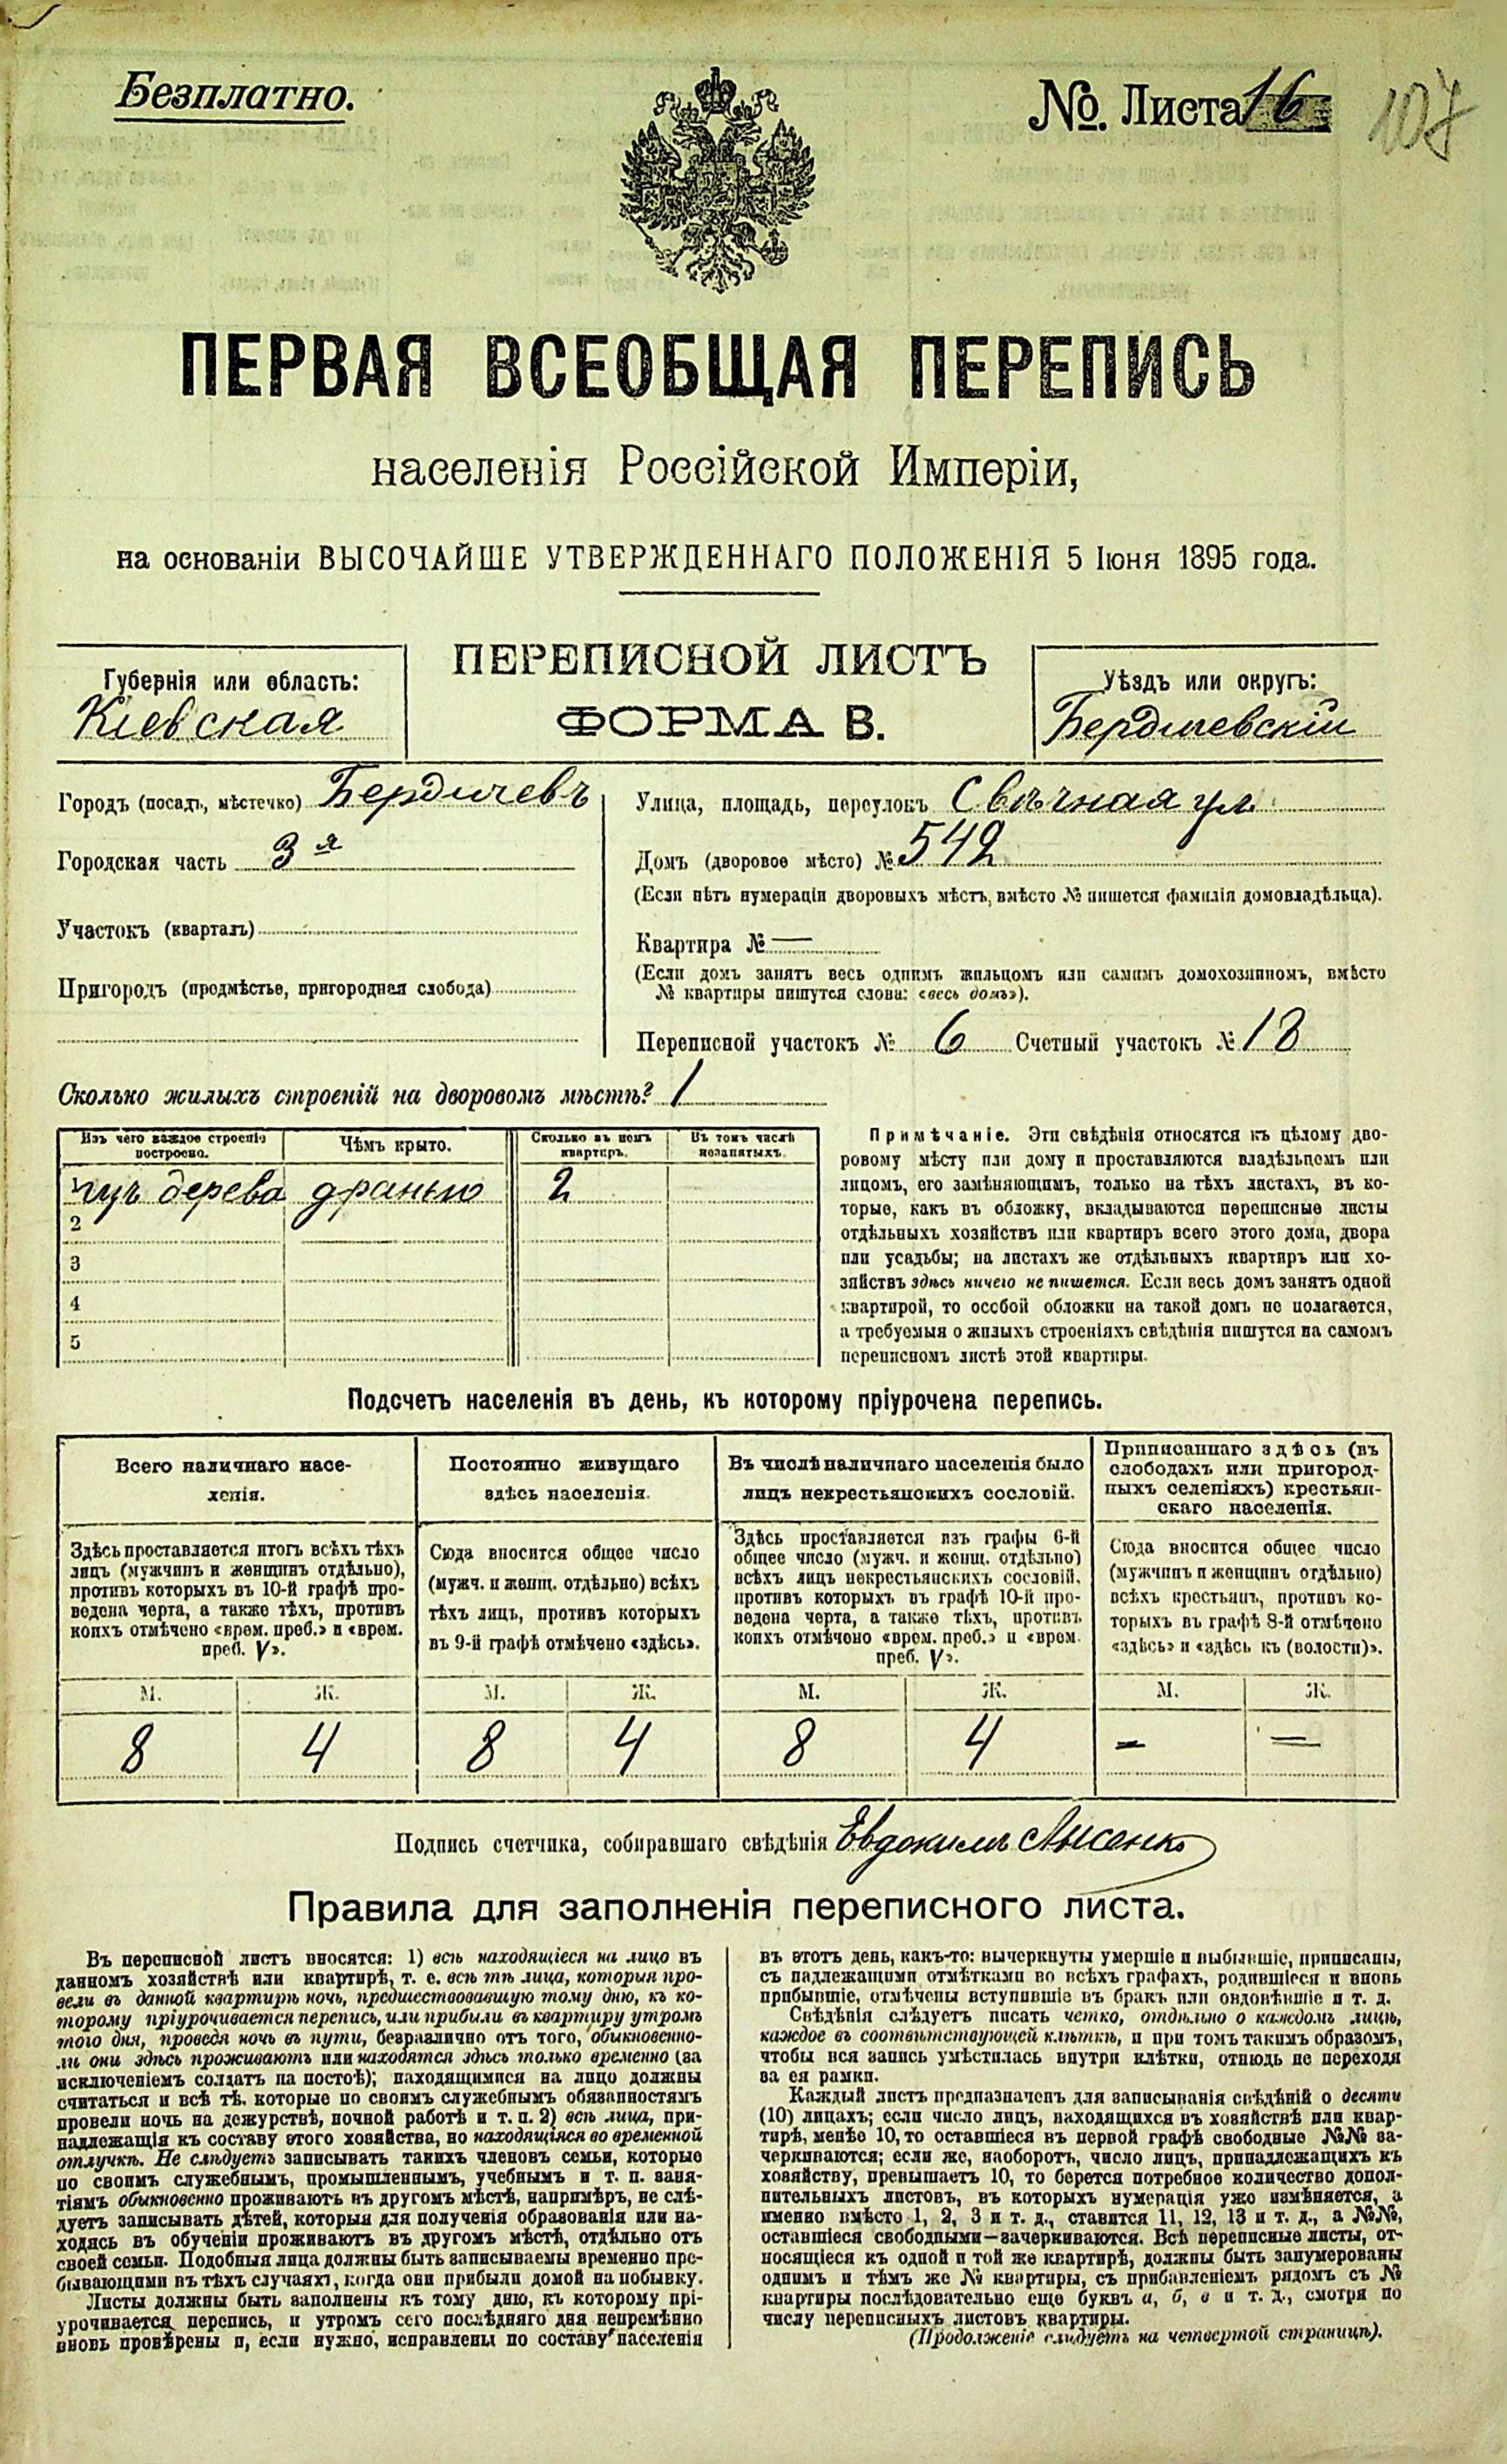 Безплатно.
№. Листа 16
107
ПЕРВАЯ ВСЕОБЩАЯ ПЕРЕПИСЬ
населенія Россійской Имперіи,
на основаніи ВЫСОЧАЙШЕ УТВЕРЖДЕННАГО ПОЛОЖЕНІЯ 5 Іюня 1895 года.
ПЕРЕПИСНОЙ ЛИСТЪ
ФОРМА В.
Губернія или область:
Кіевская
Уѣздъ или округъ:
Бердичевскій
Городъ (посадъ, мѣстечко) Бердичевъ
Городская часть 3я
Участокъ (кварталъ)
Пригородъ (предмѣстье, пригородная слобода)
Улица, площадь, переулокъ Свѣчная ул
Домъ (дворовое мѣсто) № 542
(Если нѣтъ нумераціи дворовыхъ мѣстъ, вмѣсто № пишется фамилія домовладѣльца).
Квартира № —
(Если домъ занятъ весь однимъ жильцомъ или самимъ домохозяиномъ, вмѣсто
№ квартиры пишутся слова: «весь домъ»).
Переписной участокъ № 6 Счетный участокъ № 18
Сколько жилыхъ строеній на дворовомъ мѣстѣ? 1
Изъ чего каждое строеніе
построено.
Чѣмъ крыто.
Сколько въ немъ
квартиръ.
Въ томъ числѣ
незанятыхъ.
1 изъ дерева дранью 2
2
3
4
5
Примѣчаніе. Эти свѣдѣнія относятся къ цѣлому дво-
ровому мѣсту или дому и проставляются владѣльцемъ или
лицомъ, его замѣняющимъ, только на тѣхъ листахъ, въ ко-
торые, какъ въ обложку, вкладываются переписные листы
отдѣльныхъ хозяйствъ или квартиръ всего этого дома, двора
или усадьбы; на листахъ же отдѣльныхъ квартиръ или хо-
зяйствъ здѣсь ничего не пишется. Если весь домъ занятъ одной
квартирой, то особой обложки на такой домъ не полагается,
а требуемыя о жилыхъ строеніяхъ свѣдѣнія пишутся на самомъ
переписномъ листѣ этой квартиры.
Подсчетъ населенія въ день, къ которому пріурочена перепись.
Всего наличнаго насе-
ленія.
Здѣсь проставляется итогъ всѣхъ тѣхъ
лицъ (мужчинъ и женщинъ отдѣльно),
противъ которыхъ въ 10-й графѣ про-
ведена черта, а также тѣхъ, противъ
коихъ отмѣчено «врем. преб.» и «врем.
преб. V».
М. Ж.
8 4
Постоянно живущаго
здѣсь населенія.
Сюда вносится общее число
(мужч. и женщ. отдѣльно) всѣхъ
тѣхъ лицъ, противъ которыхъ
въ 9-й графѣ отмѣчено «здѣсь».
М. Ж.
8 4
Въ числѣ наличнаго населенія было
лицъ некрестьянскихъ сословій.
Здѣсь проставляется изъ графы 6-й
общее число (мужч. и женщ. отдѣльно)
всѣхъ лицъ некрестьянскихъ сословій,
противъ которыхъ въ графѣ 10-й про-
ведена черта, а также тѣхъ, противъ
коихъ отмѣчено «врем. преб.» и «врем.
преб. V».
М. Ж.
8 4
Приписаннаго здѣсь (въ
слободахъ или пригород-
ныхъ селеніяхъ) крестьян-
скаго населенія.
Сюда вносится общее число
(мужчинъ и женщинъ отдѣльно)
всѣхъ крестьянъ, противъ ко-
торыхъ въ графѣ 8-й отмѣчено
«здѣсь» и «здѣсь къ (волости)».
М. Ж.
— —
Подпись счетчика, собиравшаго свѣдѣнія Евдокимъ Лысенко
Правила для заполненія переписного листа.
Въ переписной листъ вносятся: 1) всѣ находящіеся на лицо въ
данномъ хозяйствѣ или квартирѣ, т. е. всѣ тѣ лица, которыя про-
вели въ данной квартирѣ ночь, предшествовавшую тому дню, къ ко-
торому пріурочивается перепись, или прибыли въ квартиру утромъ
того дня, проведя ночь въ пути, безразлично отъ того, обыкновенно-
ли они здѣсь проживаютъ или находятся здѣсь только временно (за
исключеніемъ солдатъ на постоѣ); находящимися на лицо должны
считаться и всѣ тѣ, которые по своимъ служебнымъ обязанностямъ
провели ночь на дежурствѣ, ночной работѣ и т. п. 2) всѣ лица, при-
надлежащія къ составу этого хозяйства, но находящіяся во временной
отлучкѣ. Не слѣдуетъ записывать такихъ членовъ семьи, которые
по своимъ служебнымъ, промышленнымъ, учебнымъ и т. п. заня-
тіямъ обыкновенно проживаютъ въ другомъ мѣстѣ, напримѣръ, не слѣ-
дуетъ записывать дѣтей, которыя для полученія образованія или на-
ходясь въ обученіи проживаютъ въ другомъ мѣстѣ, отдѣльно отъ
своей семьи. Подобныя лица должны быть записываемы временно пре-
бывающими въ тѣхъ случаяхъ, когда они прибыли домой на побывку.
Листы должны быть заполнены къ тому дню, къ которому прі-
урочивается перепись, и утромъ сего послѣдняго дня непремѣнно
вновь провѣрены и, если нужно, исправлены по составу населенія
въ этотъ день, какъ-то: вычеркнуты умершіе и выбывшіе, приписаны,
съ надлежащими отмѣтками во всѣхъ графахъ, родившіеся и вновь
прибывшіе, отмѣчены вступившіе въ бракъ или овдовѣвшіе и т. д.
Свѣдѣнія слѣдуетъ писать четко, отдѣльно о каждомъ лицѣ,
каждое въ соотвѣтствующей клѣткѣ, и при томъ такимъ образомъ,
чтобы вся запись умѣстилась внутри клѣтки, отнюдь не переходя
за ея рамки.
Каждый листъ предназначенъ для записыванія свѣдѣній о десяти
(10) лицахъ; если число лицъ, находящихся въ хозяйствѣ или квар-
тирѣ, менѣе 10, то оставшіеся въ первой графѣ свободные №№ за-
черкиваются; если же, наоборотъ, число лицъ, принадлежащихъ къ
хозяйству, превышаетъ 10, то берется потребное количество допол-
нительныхъ листовъ, въ которыхъ нумерація уже измѣняется, а
именно вмѣсто 1, 2, 3 и т. д., ставятся 11, 12, 13 и т. д., а №№,
оставшіеся свободными—зачеркиваются. Всѣ переписные листы, от-
носящіеся къ одной и той же квартирѣ, должны быть занумерованы
однимъ и тѣмъ же № квартиры, съ прибавленіемъ рядомъ съ №
квартиры послѣдовательно еще буквъ а, б, в и т. д., смотря по
числу переписныхъ листовъ квартиры.
(Продолженіе слѣдуетъ на четвертой страницѣ).